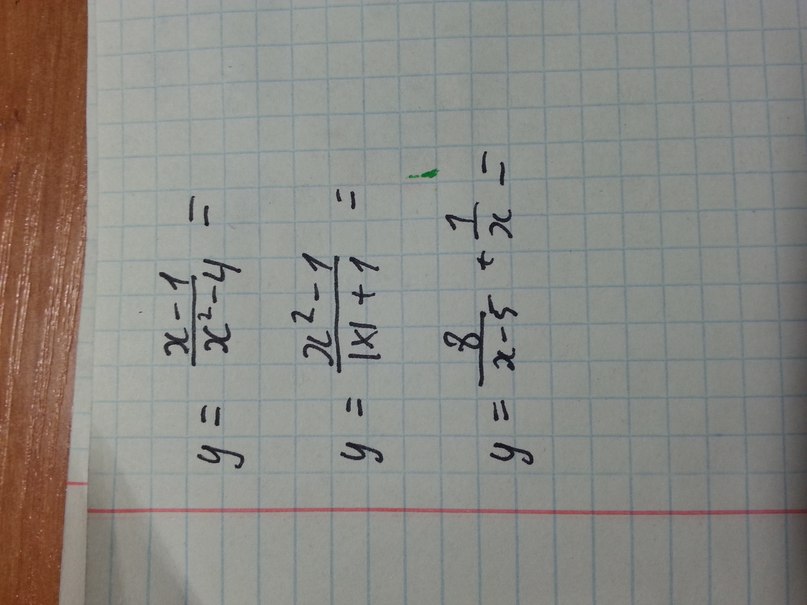 y = \frac{x-1}{x^2-4} =
y = \frac{x^2-1}{|x|+1} =
y = \frac{8}{x-5} + \frac{1}{x} =